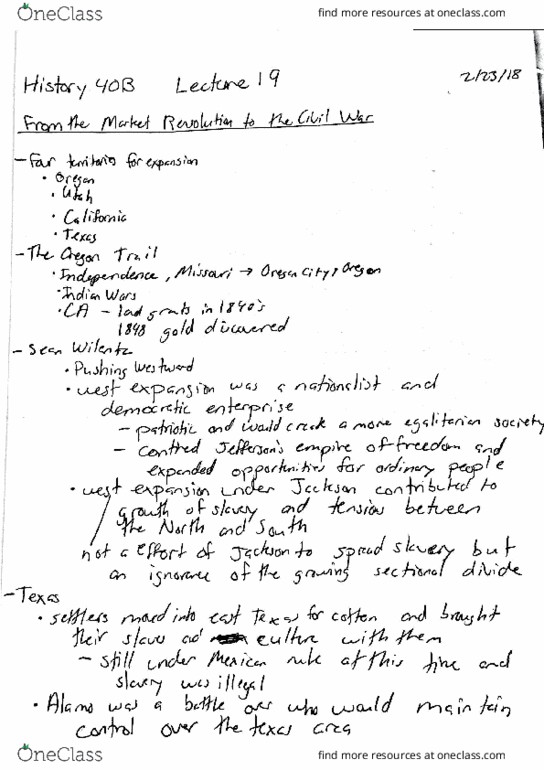 OneClass
find more resources at oneclass.com
History 40B Lecture 19 2/23/18
From the Market Revolution to the Civil War
- Four territories for expansion
• Oregon
• Utah
• California
• Texas
- The Oregon Trail
• Independence, Missouri → Oregon City, Oregon
• Indian Wars
• CA - land grants in 1840's
1848 gold discovered
- Sean Wilentz
• Pushing Westward
• west expansion was a nationalist and
democratic enterprise
- patriotic and would create a more egalitarian society
- contined Jefferson's empire of freedom and
expanded opportunities for ordinary people
• west expansion under Jackson contributed to
growth of slavery and tensions between
the North and South
not a effort of Jackson to spread slavery but
an ignorance of the growing sectional divide
- Texas
• settlers moved into east Texas for cotton and brought
their slaves and culture with them
- still under Mexican rule at this time and
slavery was illegal
• Alamo was a battle over who would maintain
control over the texas area
OneClass
find more resources at oneclass.com